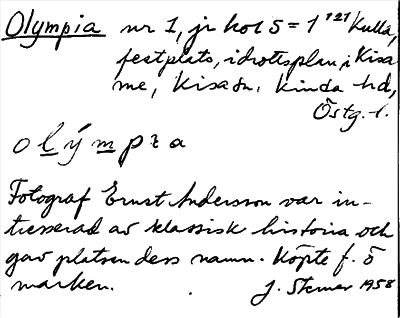 Olympia nr 1, jr kol 5 = 1 121 Kulla,
festplats, idrottsplan i Kisa
me, Kisa sn. Kinda hd,
Östg. l.
olýmpɩa
Fotograf Ernst Andersson var in-
tresserad av klassisk historia och
gav platsen dess namn. Köpte f. ö
marken. J. Stemer 1958